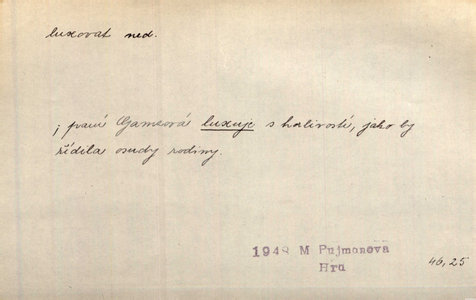 luxovat ned.
; paní Gamzová luxuje s halivostí, jako by
řídila osudy rodiny.
1948 M Pujmanová
Hra
46,25